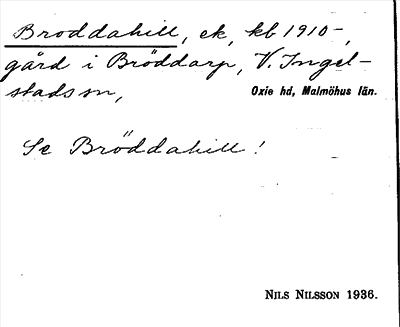 Broddahill, ek, kb 1910-,
gård i Bröddarp, V. Ingel-
stads sn,
Oxie hd, Malmöhus län.
Se Bröddahill!
Nils Nilsson 1936.